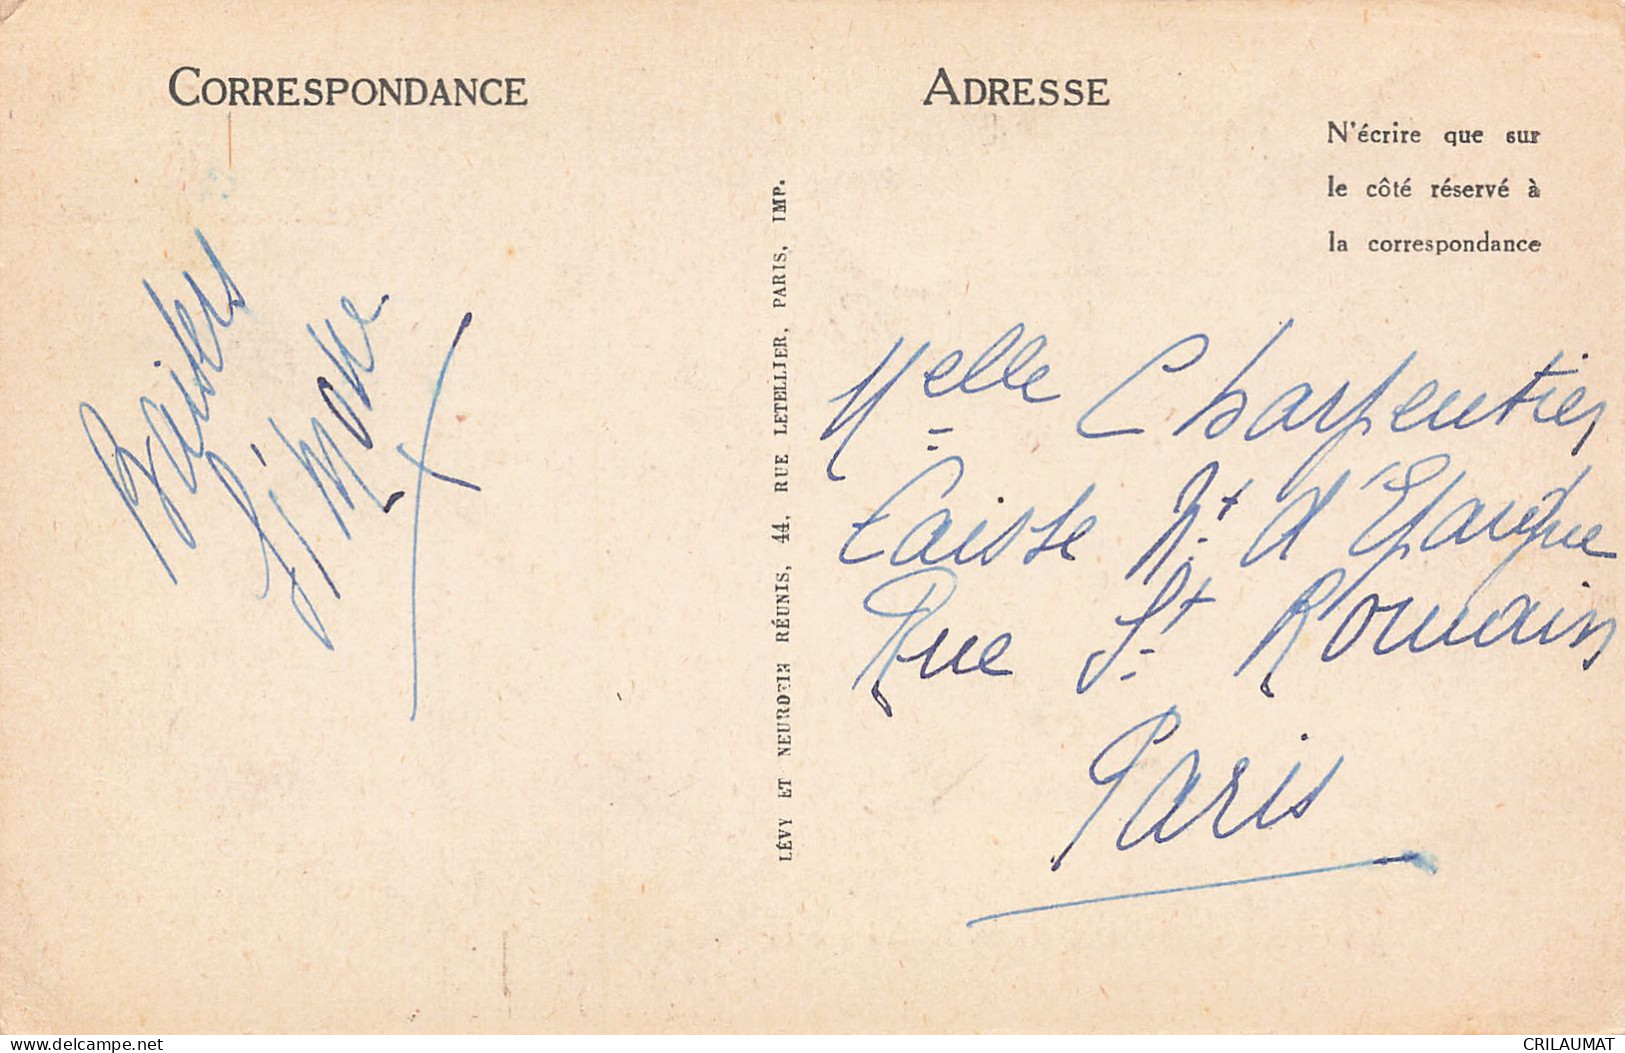 CORRESPONDANCE
Baisers
Simone
LÉVY ET NEURDEIN RÉUNIS, 44, RUE LETELLIER, PARIS, IMP.
ADRESSE
N'écrire que sur
le côté réservé à
la correspondance
Melle Charpentier
Caisse Nt d'Epargne
Rue St Romain
Paris
delcampe.net
CRILAUMAT